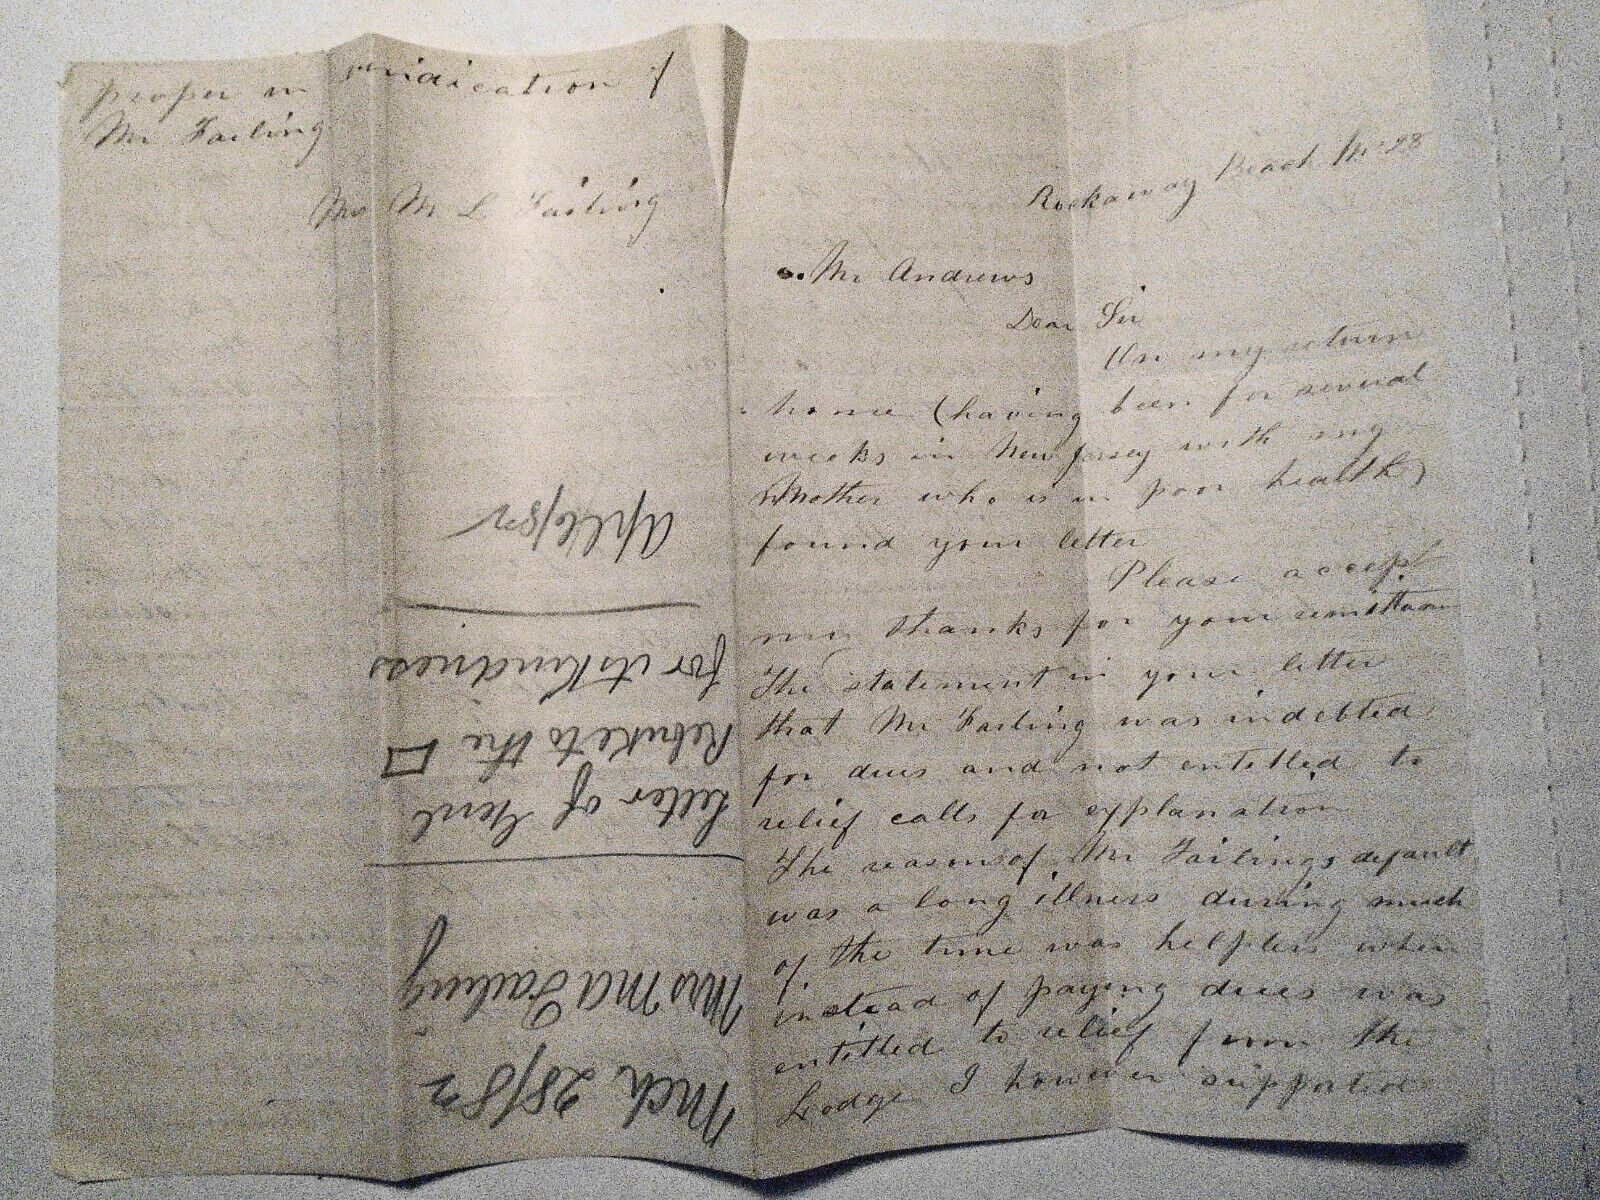 proper in vindication of
Mr Failing
Mrs M L Failing
Rockaway Beach Mr 28
Mr Andrews
Dear Sir
On my return
home (having been for several
weeks in New Jersey with my
Mother who is in poor health)
found your letter
Please accept
my thanks for your
The statement in your letter
that Mr Failing was indebted
for dues and not entitled to
relief calls for explanation
The reason of Mr Failings default
was a long illness during much
of the time was helpless when
instead of paying dues was
entitled to relief from the
Lodge I however supported
Mch 28/82
Mrs MA Failing
Letter of
Rebuke to the
for its Kindness
Apl 6/82